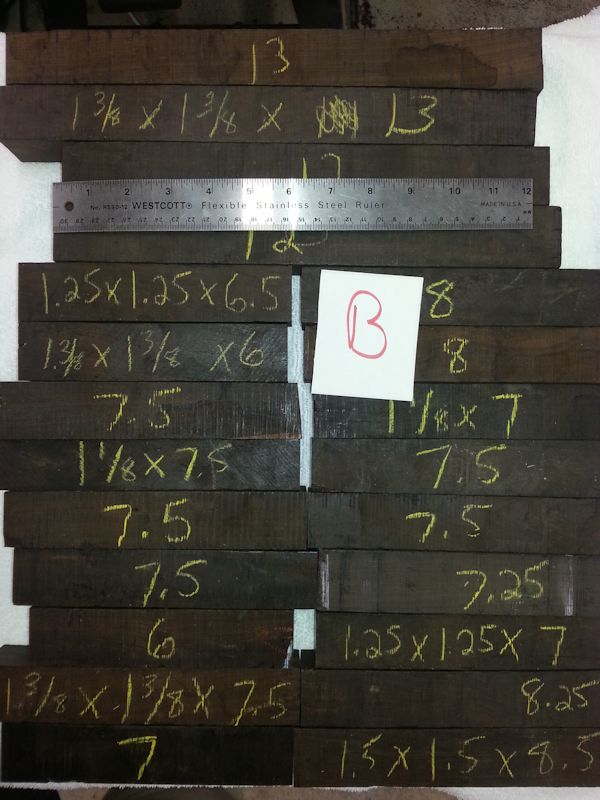 13
1 3/8 x 1 3/8 x 13
1 2 3 4 5 6 7 8 9 10 11 12
No. R590-12 WESTCOTT® Flexible Stainless Steel Ruler MADE IN U.S.A.
12
1.25 x 1.25 x 6.5
8
B
1 3/8 x 1 3/8 x 6
8
7.5
1 1/8 x 7
1 1/8 x 7.5
7.5
7.5
7.5
7.5
7.25
6
1.25 x 1.25 x 7
1 3/8 x 1 3/8 x 7.5
8.25
7
1.5 x 1.5 x 8.5